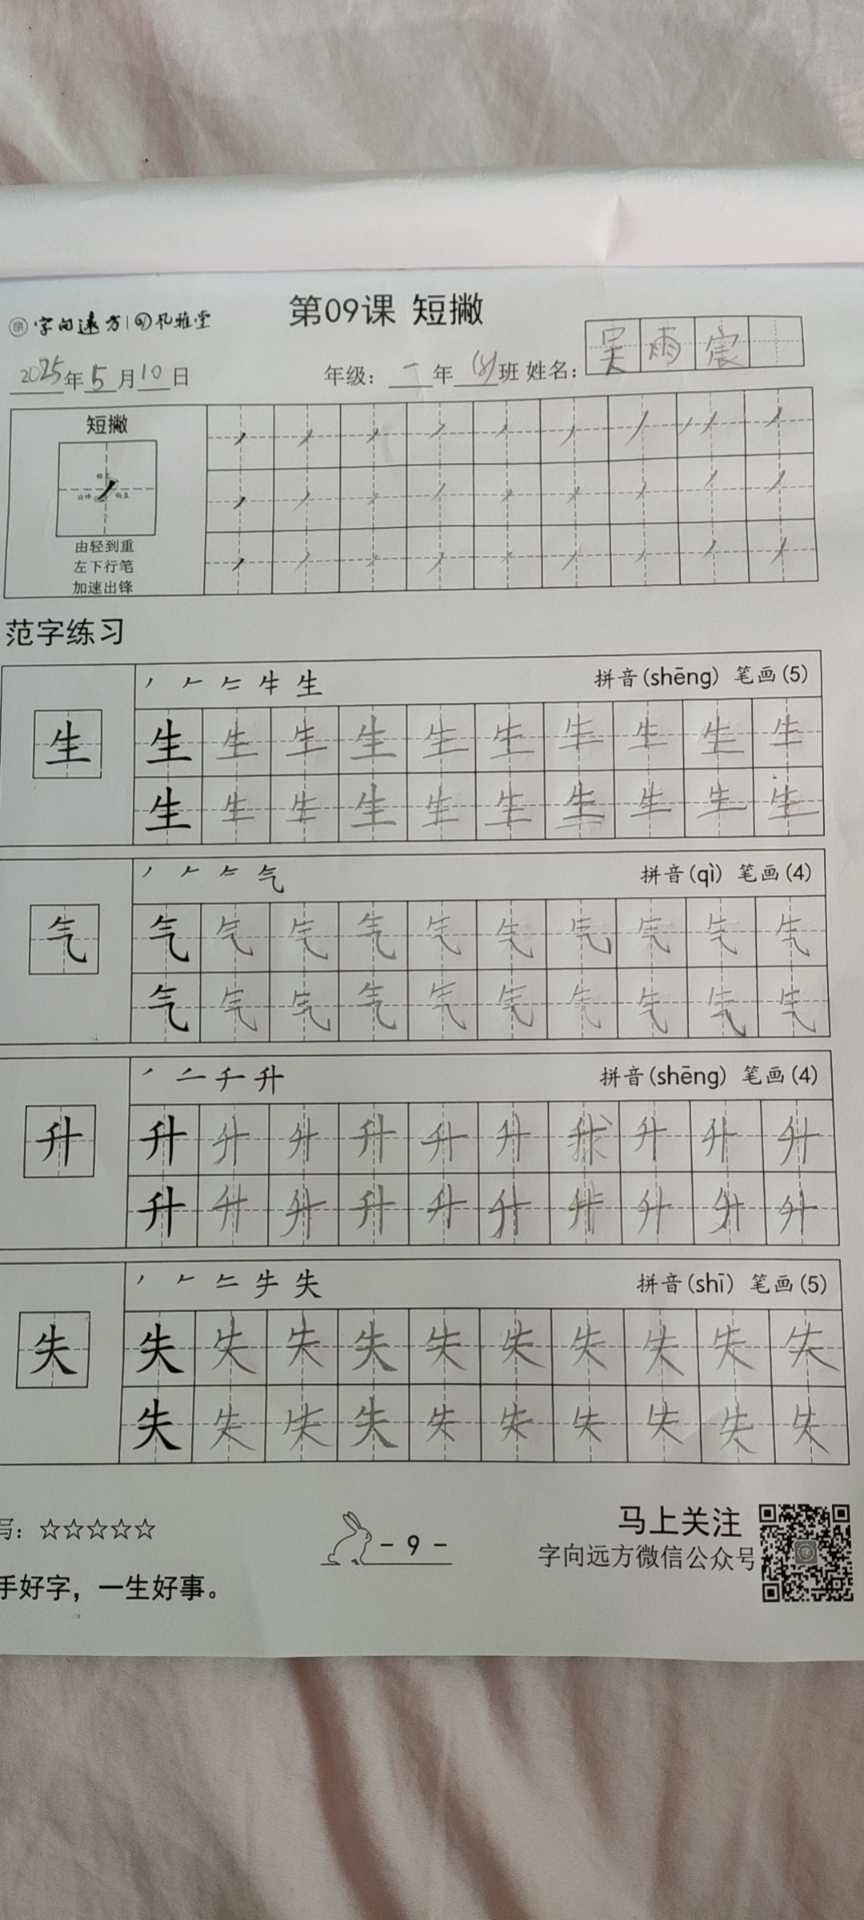 字向远方 孔雅堂
第09课 短撇
2025年5月10日 年级：一年(8)班 姓名：吴雨宸
短撇
由轻到重
左下行笔
加速出锋
范字练习
拼音(shēng) 笔画(5)
生 生 生 生 生 生 生 生 生 生 生
生 生 生 生 生 生 生 生 生 生
拼音(qì) 笔画(4)
气 气 气 气 气 气 气 气 气 气 气
气 气 气 气 气 气 气 气 气 气
拼音(shēng) 笔画(4)
升 升 升 升 升 升 升 升 升 升 升
升 升 升 升 升 升 升 升 升 升
拼音(shī) 笔画(5)
失 失 失 失 失 失 失 失 失 失 失
失 失 失 失 失 失 失 失 失 失
写：☆☆☆☆☆
- 9 -
马上关注
字向远方微信公众号
手好字，一生好事。